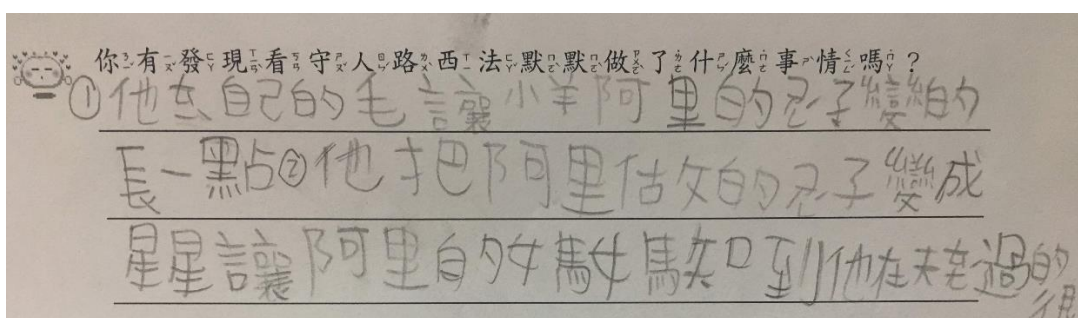 你有發現看守人路西法默默做了什麼事情嗎？
①他去自己的毛讓小羊阿里的子變的
長一點②他把阿里做的子變成
星星讓阿里的媽媽知到他在未老過的
很